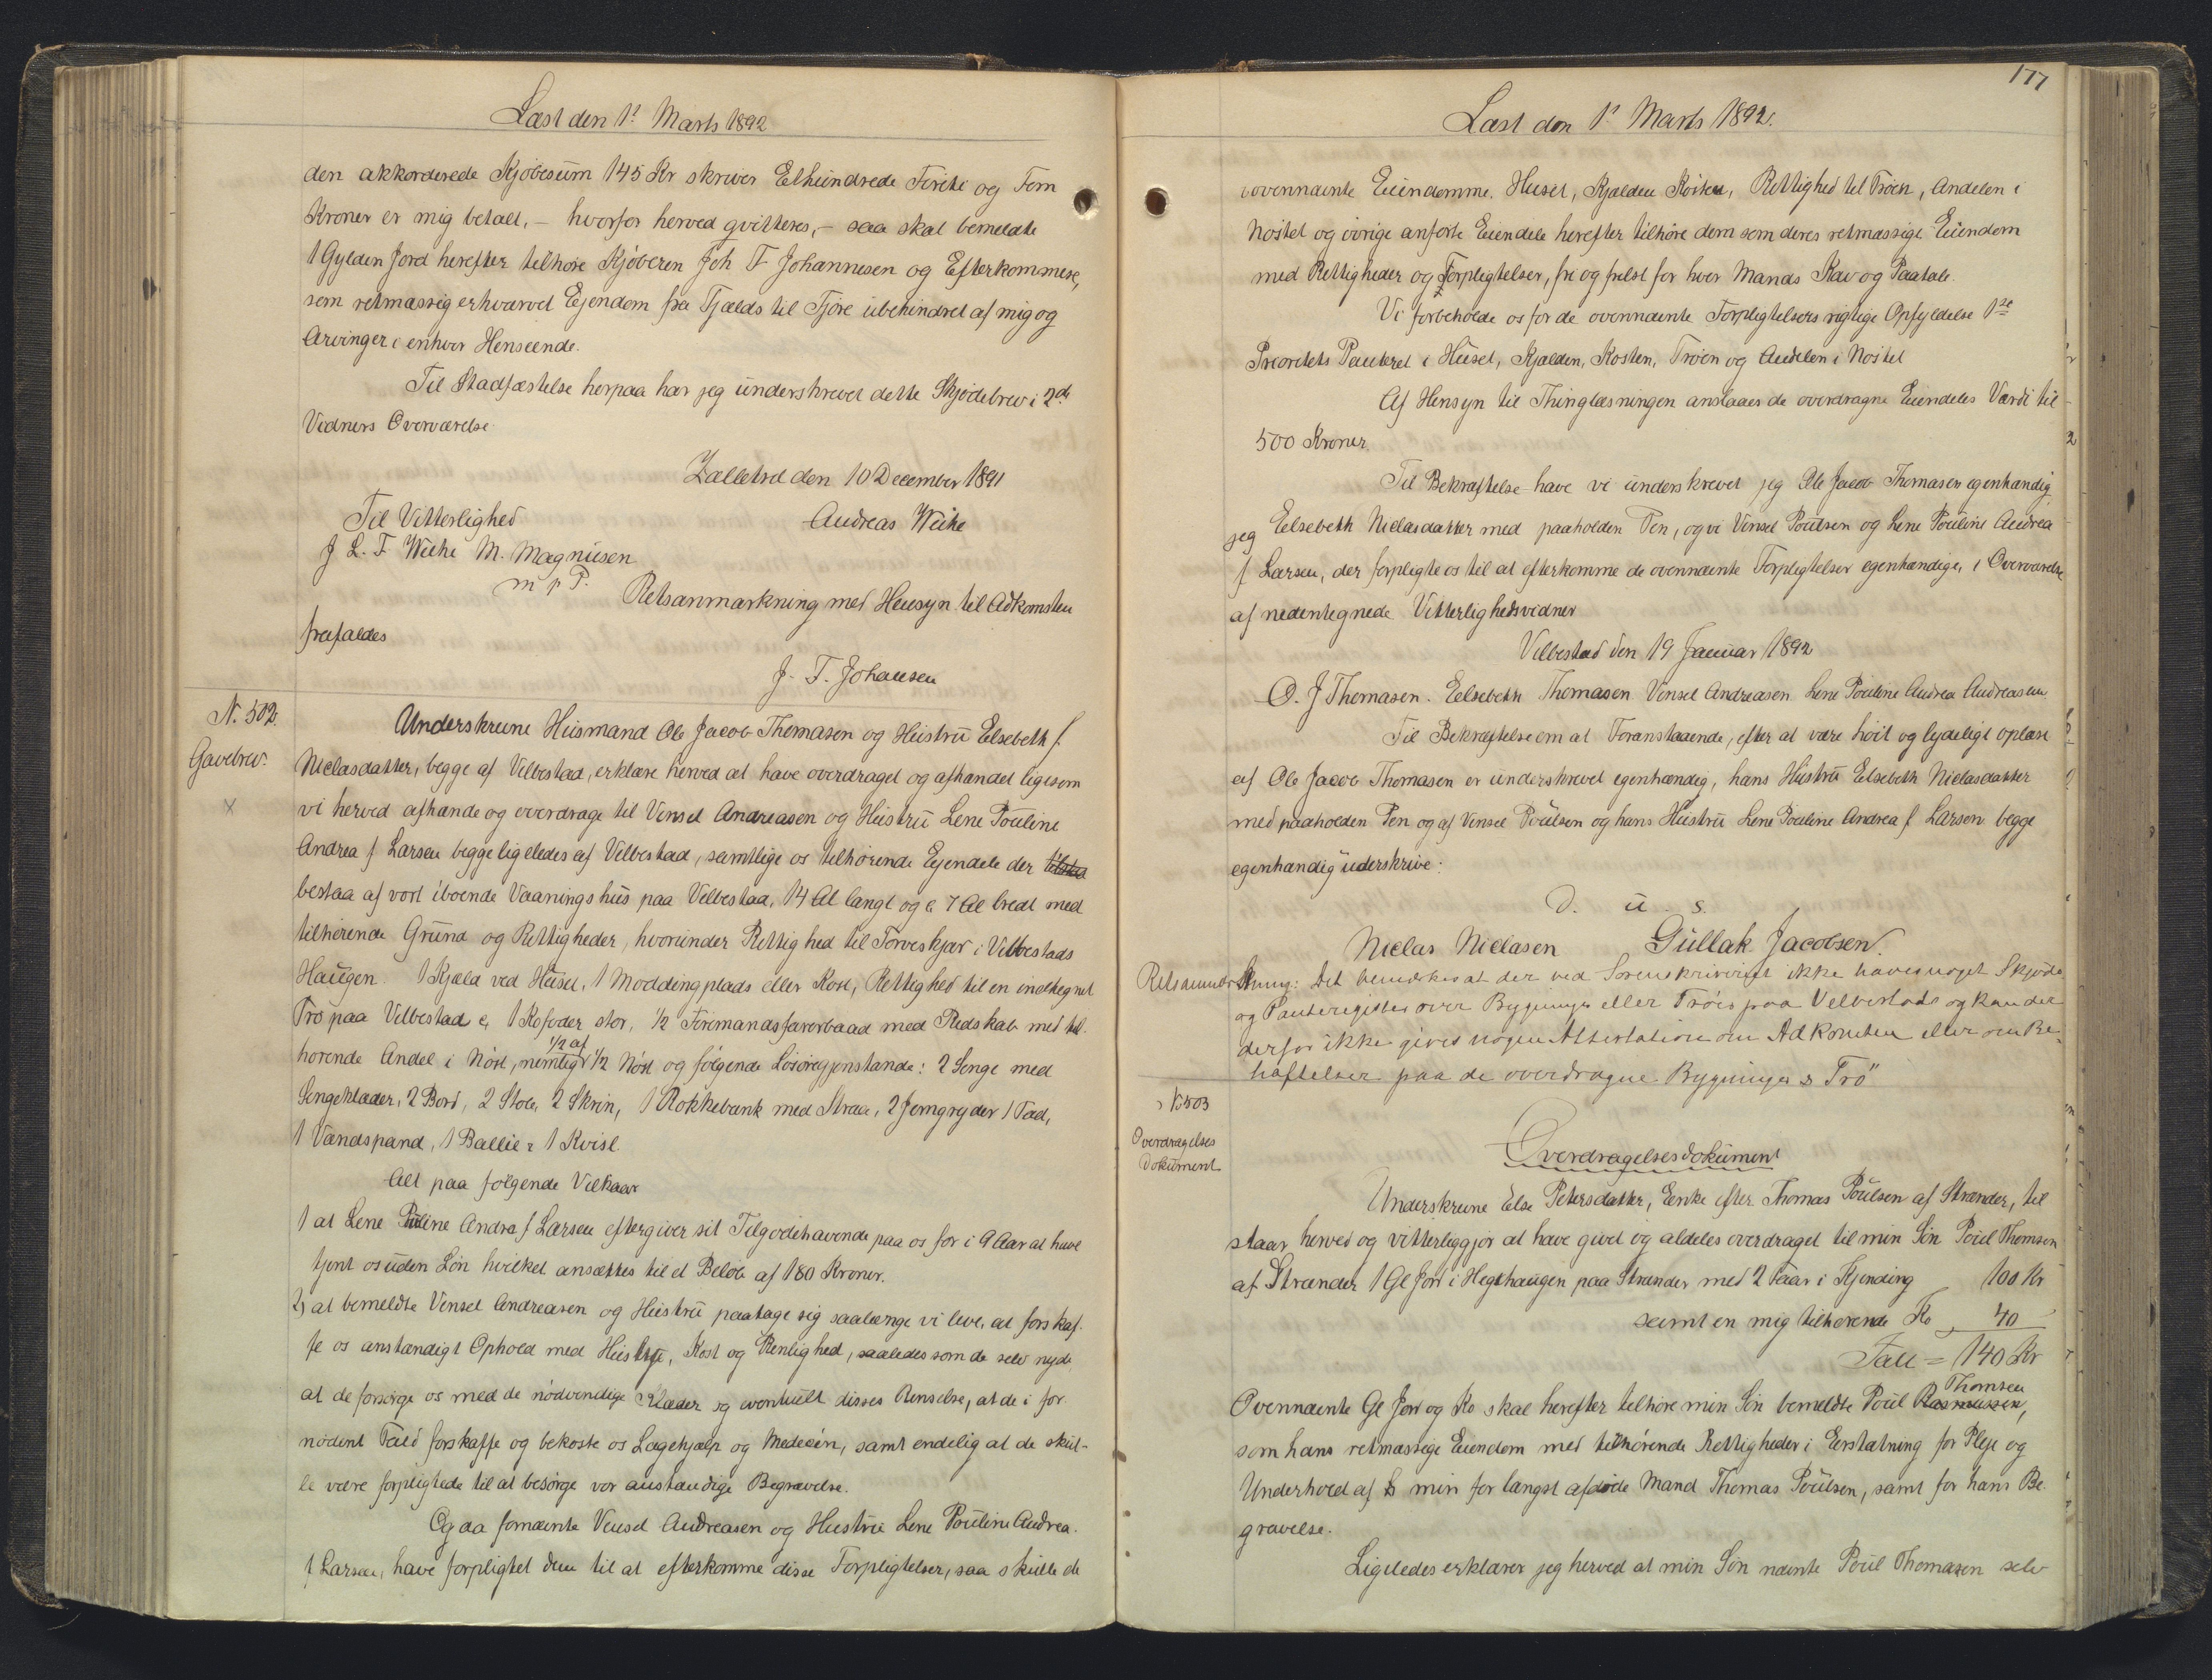 Læst den 1' Marts 1892
den akkorderede Kjøbesum 145 Kr skriver Ethundrede Firti og Fem
Kroner er mig betalt, - hvorfor herved qvitteres, - saa skal bemeldte
1 Gylden Jord herefter tilhøre Kjøberen Joh F Johannesen og Efterkommere,
som retmæssig erhvervet Ejendom fra Fjælds til Fjøre ubehindret af mig og
Arvinger i enhver Henseende.
Til Stadfæstelse herpaa har jeg underskrevet dette Skjødebrev i 2de
Vidners Overværelse.
den 10 December 1891
Til Vitterlighed Andreas Weihe
J L. F Weihe M. Magnusen
m p P.
Retsanmærkning med Hensyn til Adkomsten
frafaldes
J. F. Johansen
N. 502.
Gavebrev.
X
Underskrevne Husmand Ole Jacob Thomasen og Hustru Elsebeth f.
Niclasdatter, begge af Velbestad, erklære herved at have overdraget og afhændet ligesom
vi herved afhænde og overdrage til Vensel Andreasen og Hustru Lene Pouline
Andrea f Larsen begge ligeledes af Velbestad, samtlige os tilhørende Ejendele der
bestaa af vort iboende Vaaningshus paa Velbestad, 14 Al langt og c 7 Al bredt med
tilhørende Grund og Rettigheder, hvorunder Rettighed til Torveskjær i Velbestads
Haugen. 1 Kjæld ved Huset, 1 Møddingplads eller Kost, Rettighed til en indhegnet
Trø paa Velbestad c, 1 Kofoder stor, 1/2 Firemandsfarerbaad med Redskab med til-
hørende Andel i Nøst, nemlig 1/2 af 1/2 Nøst og følgende Løsøregjenstande: 2 Senge med
Sengeklæder, 2 Bord, 2 Stole, 2 Skrin, 1 Rokkebænk med Straa, 2 Jerngryder 1 Fad,
1 Vandspand, 1 Ballie & 1 Kvisl.
Alt paa følgende Vilkaar
1 at Lene Pouline Andrea f Larsen eftergiver sit Tilgodehavende paa os for i 9 Aar at have
tjent os uden Løn hvilket ansættes til et Beløb af 180 Kroner.
2) at bemeldte Vensel Andreasen og Hustru paatage sig saalænge vi leve, at forskaf-
fe os anstændigt Ophold med Huslye, Kost og Renlighed, saaledes som de selv nyde
at de forsørge os med de nødvendige Klæder og eventuelt disses Renselse, at de i for-
nødent Fald forskaffe og bekoste os Lægehjælp og Medecin, samt endelig at de skul-
le være forpligtede til at besørge vor anstændige Begravelse.
Og da fornævnte Vensel Andreasen og Hustru Lene Pouline Andrea
f Larsen, have forpligtet dem til at efterkomme disse Forpligtelser, saa skulle de
177
Læst den 1' Marts 1892.
ovennævnte Eiendomme. Huset, Kjælden Kosten, Rettighed til Trøen, Andelen i
Nøstet og øvrige anførte Eiendele herefter tilhøre dem som deres retmæssige Eiendom
med Rettigheder og Forpligtelser, fri og frelst for hver Mands Krav og Paatale.
Vi forbeholde os for de ovennævnte Forpligtelsers rigtige Opfyldelse 1ste
Prioritets Panteret i Huset, Kjælden, Kosten, Trøen og Andelen i Nøstet
Af Hensyn til Thinglæsningen anslaaes de overdragne Eiendeles Værdi til
500 Kroner.
Til Bekræftelse have vi underskrevet jeg Ole Jacob Thomasen egenhændig
jeg Elsebeth Niclasdatter med paaholden Pen, og vi Vensel Poulsen og Lene Pouline Andrea
f Larsen, der forpligte os til at efterkomme de ovennævnte Forpligtelser egenhændige, i Overværelse
af nedentegnede Vitterlighedsvidner
Velbestad den 19 Januar 1892
O. J Thomasen. Elsebeth Thomasen Vensel Andreasen Lene Pouline Andrea Andreasen
Til Bekræftelse om at Foranstaaende, efter at være høit og lydeligt oplæst
af Ole Jacob Thomasen er underskrevet egenhændig, hans Hustru Elsebeth Niclasdatter
med paaholden Pen og af Vensel Poulsen og hans Hustru Lene Pouline Andrea f Larsen begge
egenhændig underskrive.
D. u. s.
Niclas Niclasen Gullak Jacobsen.
Retsanmærkning: Det bemærkes at der ved Sorenskriveriet ikke haves noget Skjøde
og Panteregister over Bygninger eller Trøer paa Velbestad og kan der
derfor ikke gives nogen Attestation om Adkomsten eller om Be-
hæftelser paa de overdragne Bygninger & Trø"
N 503
Overdragelses
dokument
Overdragelsesdokument
Underskrevne Else Petersdatter, Enke efter Thomas Poulsen af Strænder, til
staar herved og vitterliggjør at have givet og aldeles overdraget til min Søn Poul Thomsen
af Strænder 1 Gl Jord i Hegthaugen paa Strænder med 2 Faar i Fjending 100 Kr
samt en mig tilhørende Ko 40
Tall = 140 Kr
Ovennævnte Gl Jord og Ko skal herefter tilhøre min Søn bemeldte Poul Rasmussen, Thomsen
som hans retmæssige Eiendom med tilhørende Rettigheder i Erstatning for Pleje og
Underhold af min for længst afdøde Mand Thomas Poulsen, samt for hans Be-
gravelse.
Ligeledes erklærer jeg herved at min Søn nævnte Poul Thomasen selv